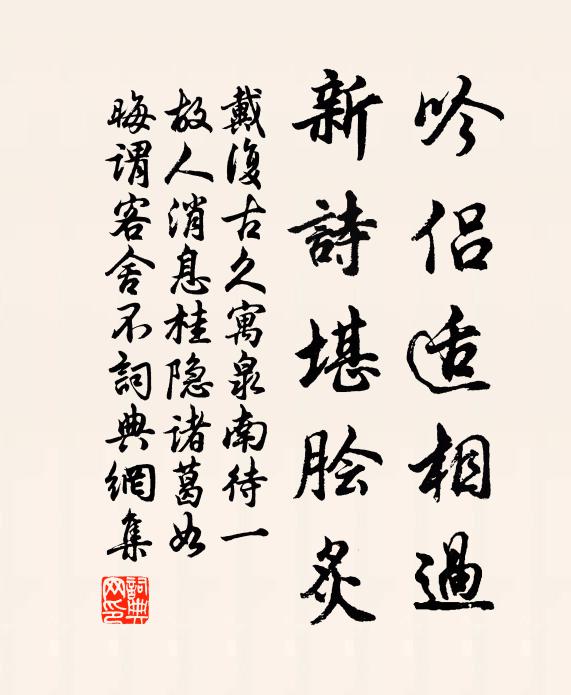 吟侣适相過
新詩堪脍炙
戴復古久寓泉南待一
故人消息桂隐諸葛如
晦謂客舍不詞典網集
詞典网印